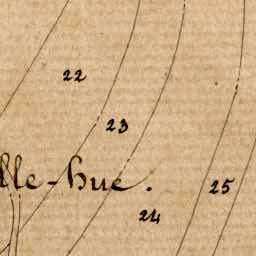 22
23
lle-hue.
25
24